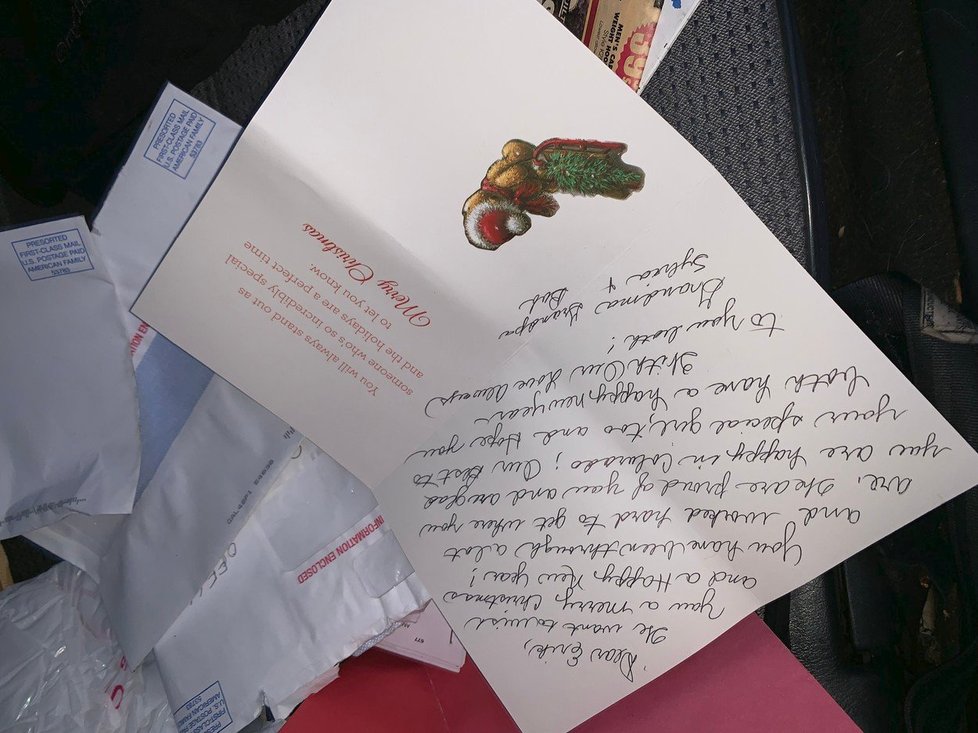 Dear Erik,
We want to wish
you a merry Christmas
and a Happy New Year!
You have been through alot
and worked hard to get where you
are. We are proud of you and are glad
you are happy in Colorado; Our Best to
your special girl, too and Hope you
both have a happy new year.
With Our Love Always
to you both!
Grandma Grandpa
Sylvia & Bob
You will always stand out as
someone who's so incredibly special
and the holidays are a perfect time
to let you know.
Merry Christmas
PRESORTED
FIRST-CLASS MAIL
U.S. POSTAGE PAID
AMERICAN FAMILY
53783
PRESORTED
FIRST-CLASS MAIL
U.S. POSTAGE PAID
AMERICAN FAMILY
53783
INFORMATION ENCLOSED
PRESORTED
FIRST-CLASS MAIL
U.S. POSTAGE PAID
AMERICAN FAMILY
53783
MEN'S
WEIGHT